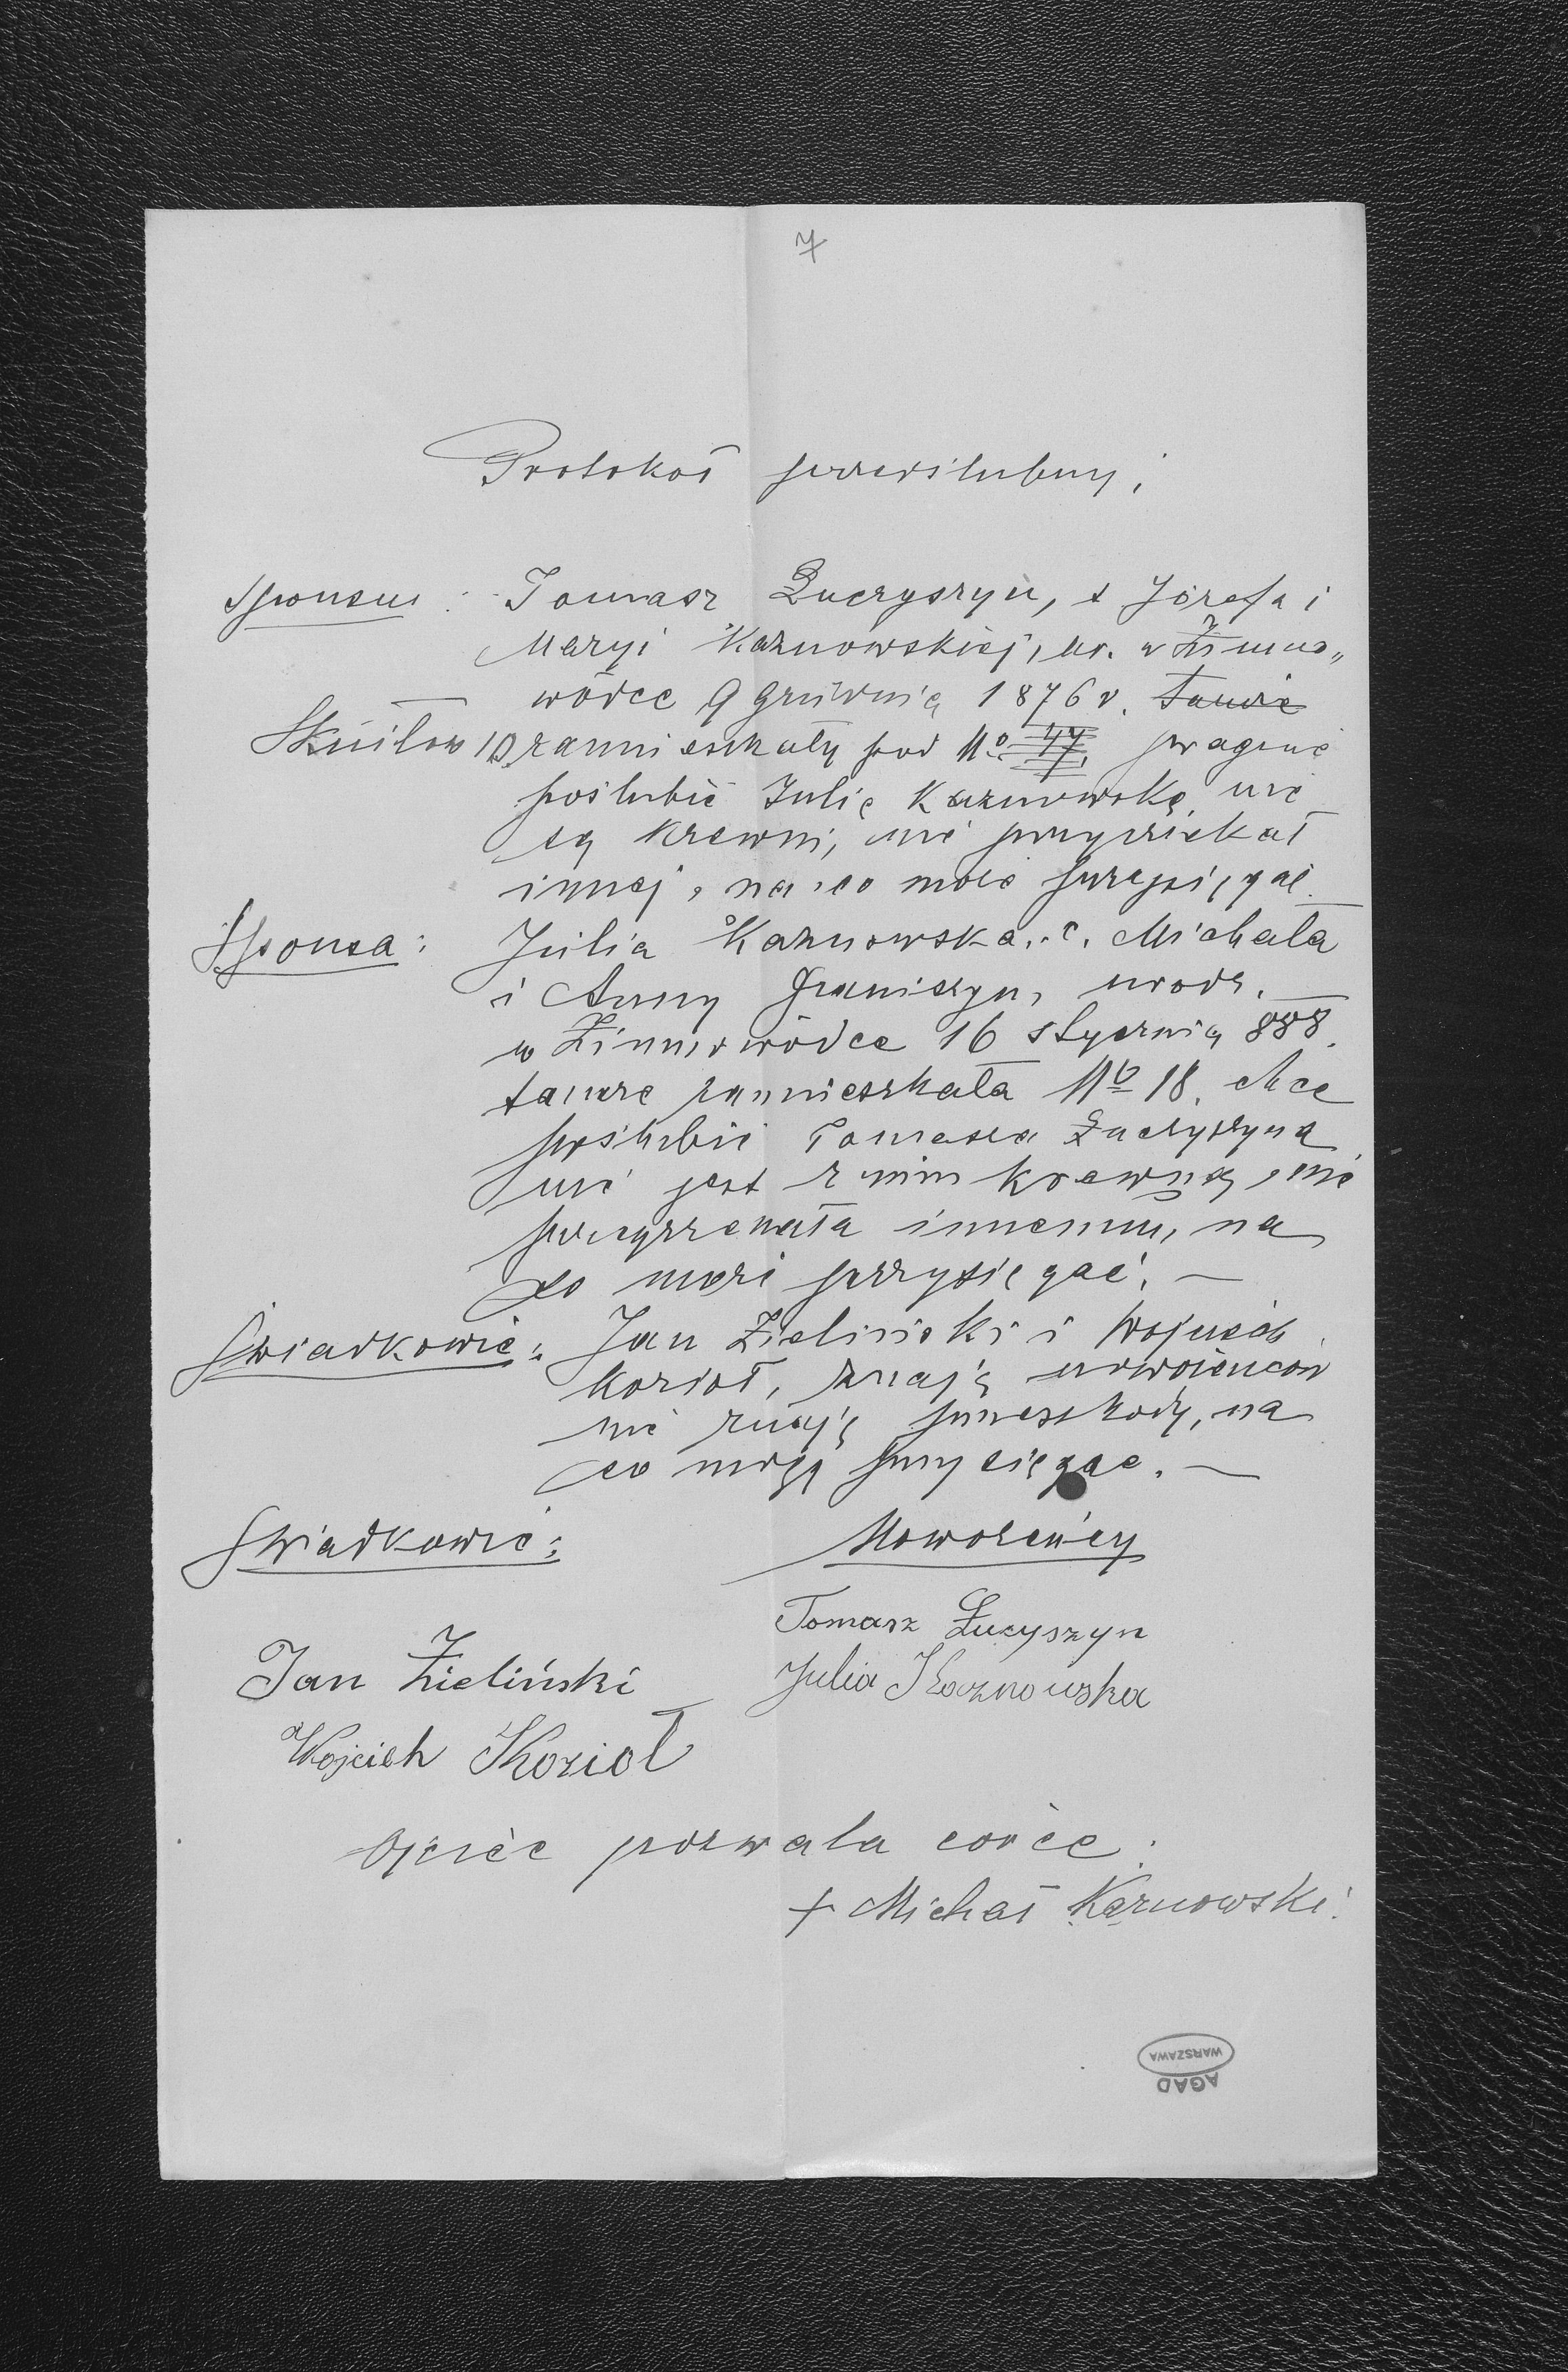 7
Protokoł przedślubny,
Sponsus: Tomasz Łuczyszyn, s Józefa i
Maryi Kaznowskiej, ur. w Zimno„
wódce 9 grudnia 1876 r. tamże
Skniłow 10 zamieszkały pod No 47, pragnie
poślubić Julię Kaznowską, nie
są krewni, nie przyrzekał
innej, na co może przysięgać.
Sponsa: Julia Kaznowska, c. Michała
i Anny, urodz.
w Zimnowódce 16 stycznia 888.
tamże zamieszkała No 18, chce
poślubić Tomasza Łuczyszyna
nie jest z nim krewną, nie
przyrzekała innemu, na
co może przysięgać. —
Świadkowie: Jan Zieliński i Wojciech
Kozioł, znają nowożeńców
nie znają przeszkody, na
co mogą przysięgać. —
Świadkowie: Nowożeńcy
Tomasz Łucyszyn
Jan Zieliński Julia Kaznowska
Wojcieh Kozioł
Ojciec pozwala córce:
+ Michał Kaznowski.
WARSZAWA
AGAD